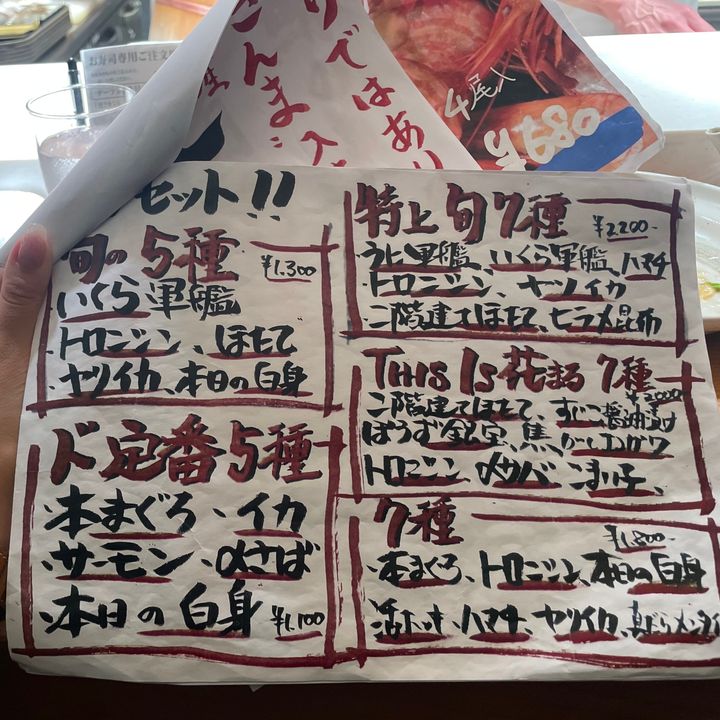 お寿司専用ご注文
りではあり
こんま
4尾入
¥980
セット!!
旬の5種
¥1,300
いくら軍艦
トロニシン、ほたて
ヤリイカ、本日の白身
ド定番5種
本まぐろ、イカ
サーモン、〆さば
本日の白身 ¥1,100
特上旬7種
¥2,200-
うに軍艦、いくら軍艦、ハマチ
トロニシン ヤリイカ
二階建てほたて、ヒラメ昆布
THIS Is 花まる 7種
¥2,000
二階建てほたて、すじこ醤油漬け
トロニシン 〆サバ こまい子、
7種
¥1,800-
本まぐろ、トロニシン、本日の白身
活ホッキ、ハマチ、ヤリイカ、真だらメンタイ